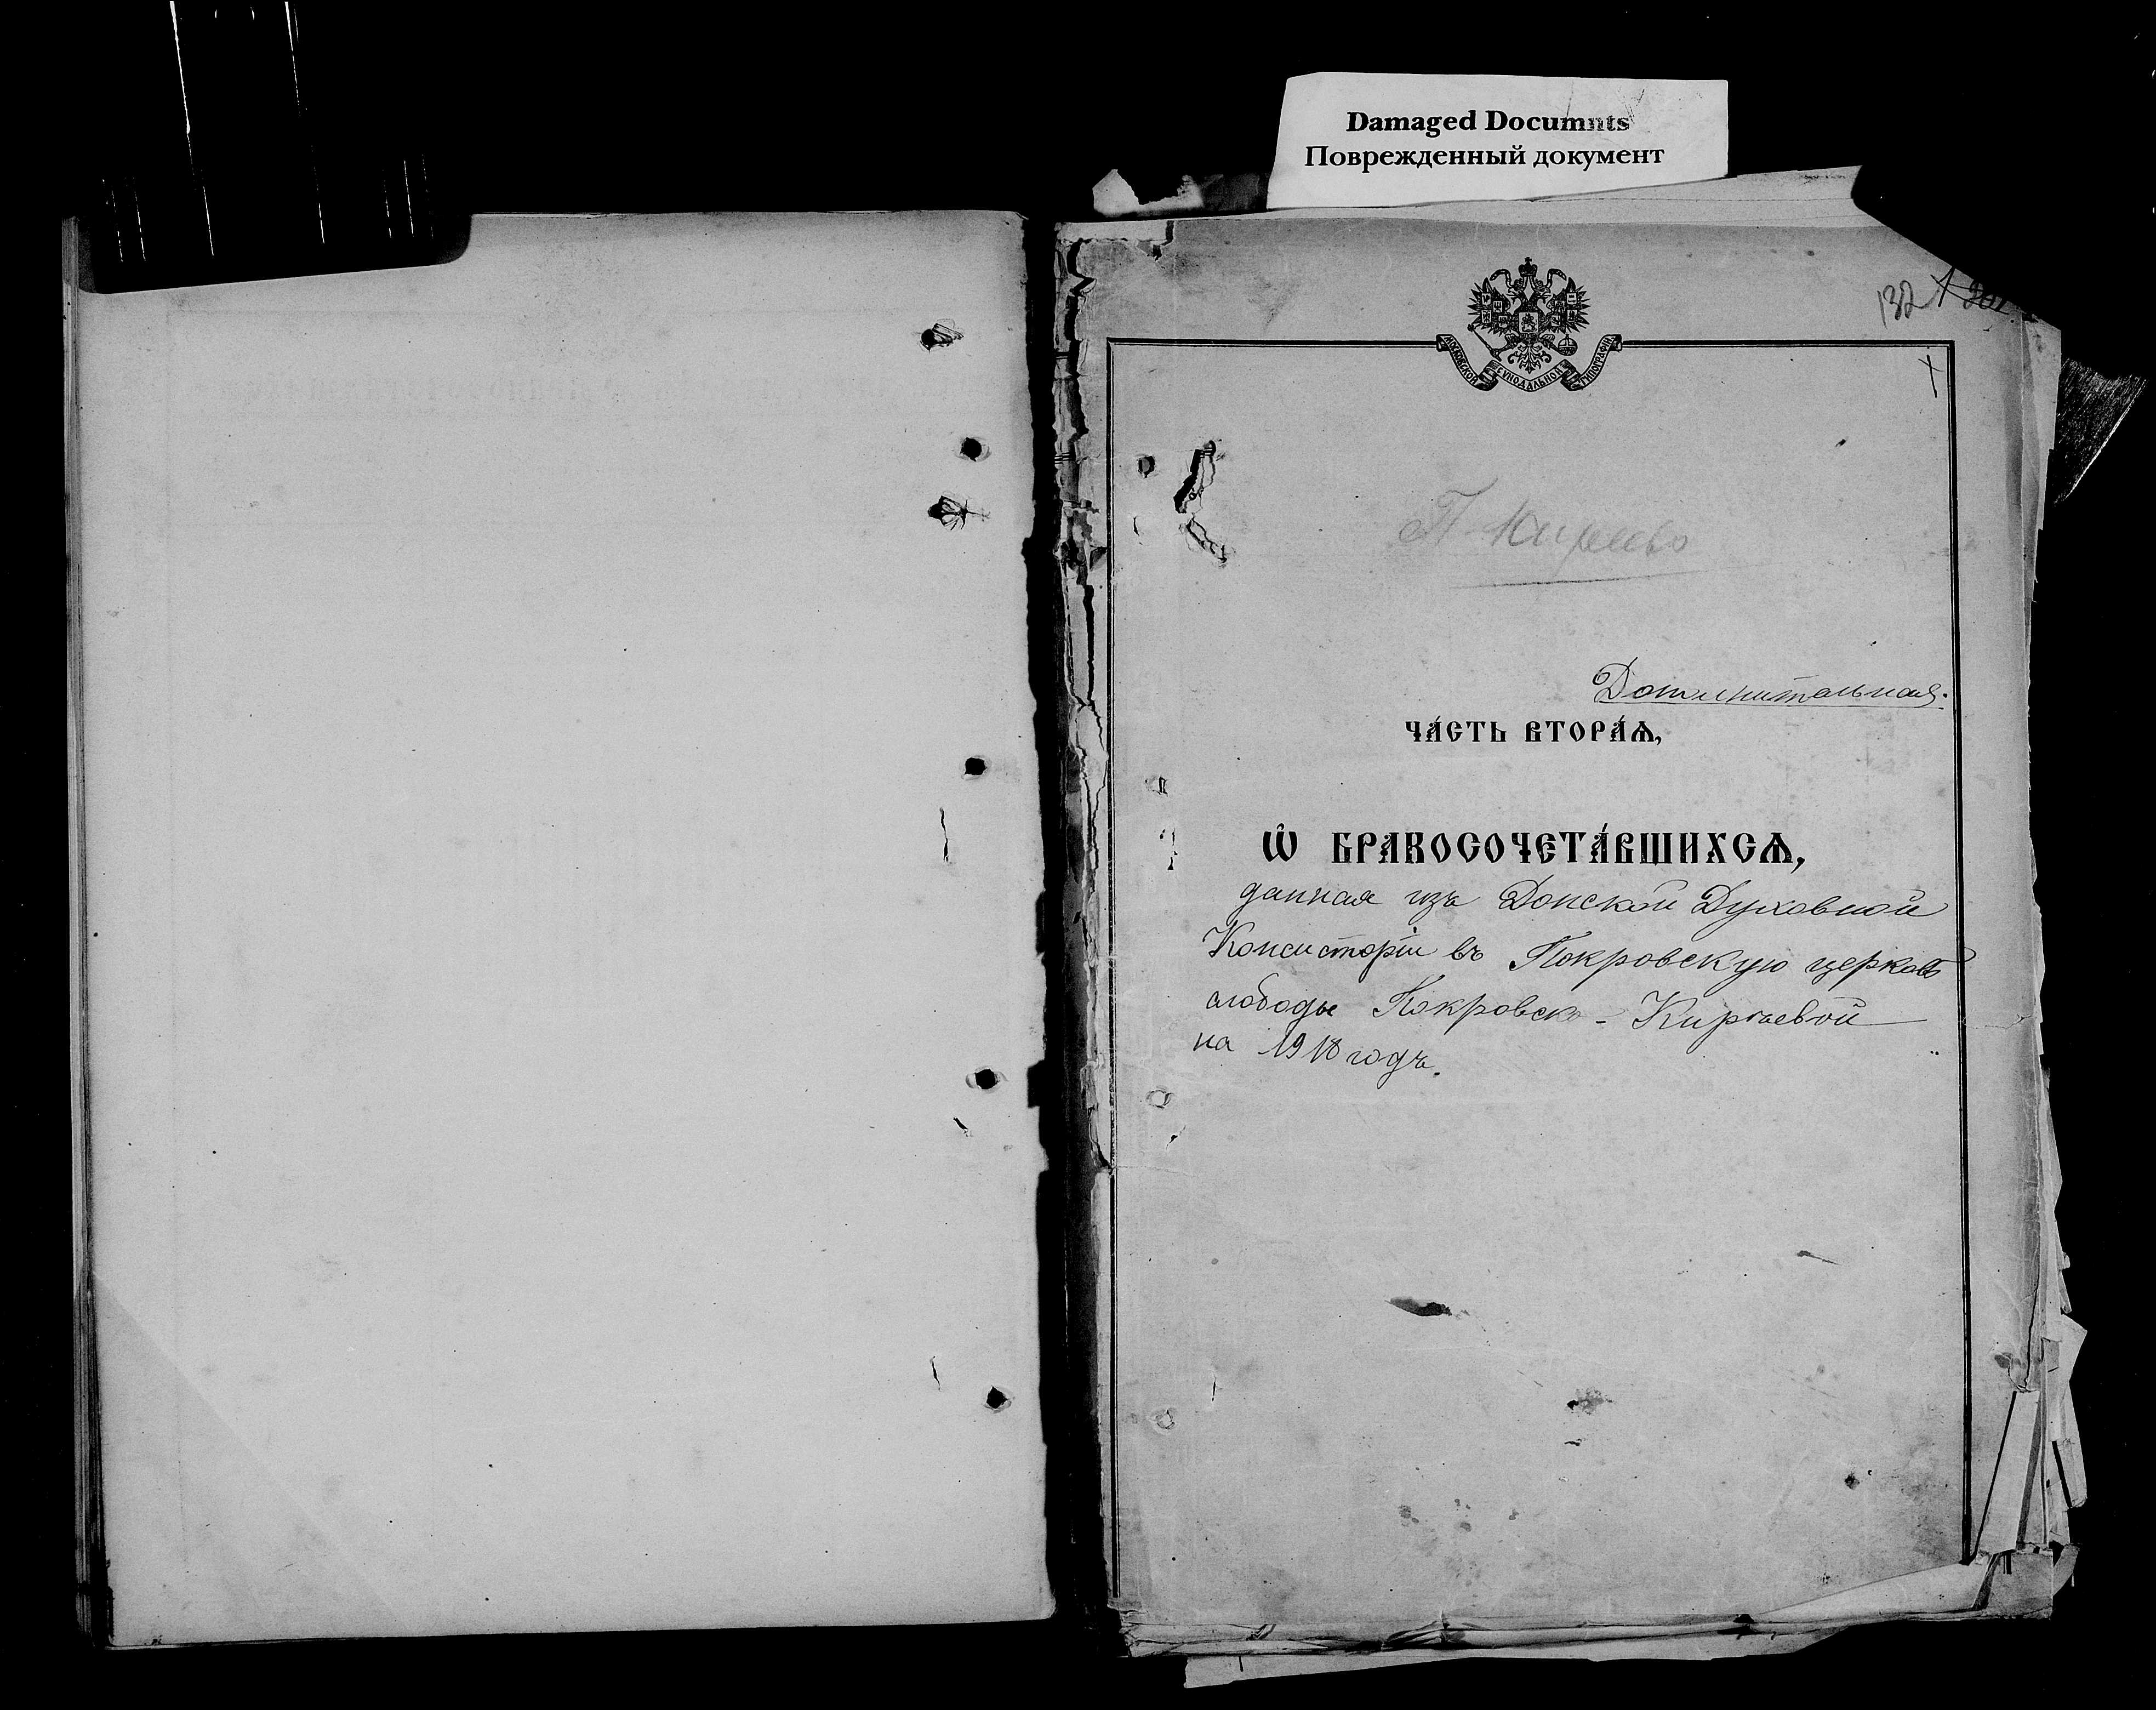 Damaged Documnts
Поврежденный документ
132
МОСКОВСКОЙ СѴНОДАЛЬНОЙ ТИПОГРАФІИ
П-Кирѣево
Дополнительная.
ЧА́СТЬ ВТОРА́Ѧ,
Ѡ҆ БРАКОСОЧЕТА́ВШИХСѦ,
данная изъ Донской Духовной
Консисторіи въ Покровскую церковь
слободы Покровско-Кирѣевой
на 1918 годъ.